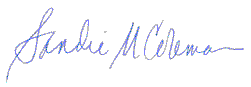 Sandie M Coleman